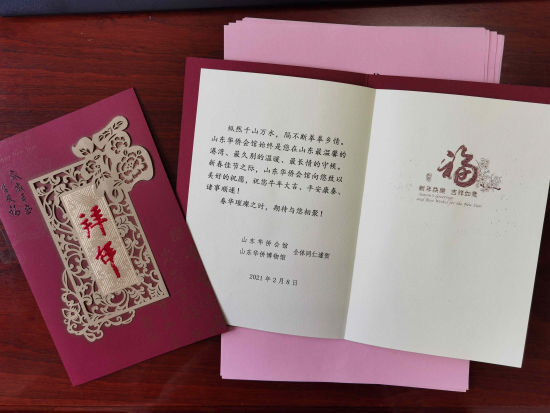 拜年
纵然千山万水，隔不断莘莘乡情。
山东华侨会馆始终是您在山东最温馨的
港湾、最久别的温暖、最长情的守候。
新春佳节之际，山东华侨会馆向您致以
美好的祝愿，祝您牛年大吉、平安康泰、
诸事顺遂！
春华璀璨之时，期待与您相聚！
山东华侨会馆
山东华侨博物馆 全体同仁谨贺
2021年2月8日
福
新年快樂 吉祥如意
Season's Greetings
and Best Wishes for the New Year